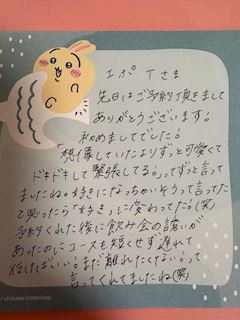 エポ Tさま
先日はご予約頂きまして
ありがとうございます!
初めましてでした!
「想像していたよりずっと可愛くて
ドキドキして緊張してる」ってずっと言って
ましたね。好きになっちゃいそうって言ってた
と思ったら「好き」に変わってた!(笑)
予約くれた後に飲み会の誘いが
あったのにコースも短くせず遅れて
行けばいい!まだ離れたくないって
言ってくれてましたね(笑)
chiikawa committee